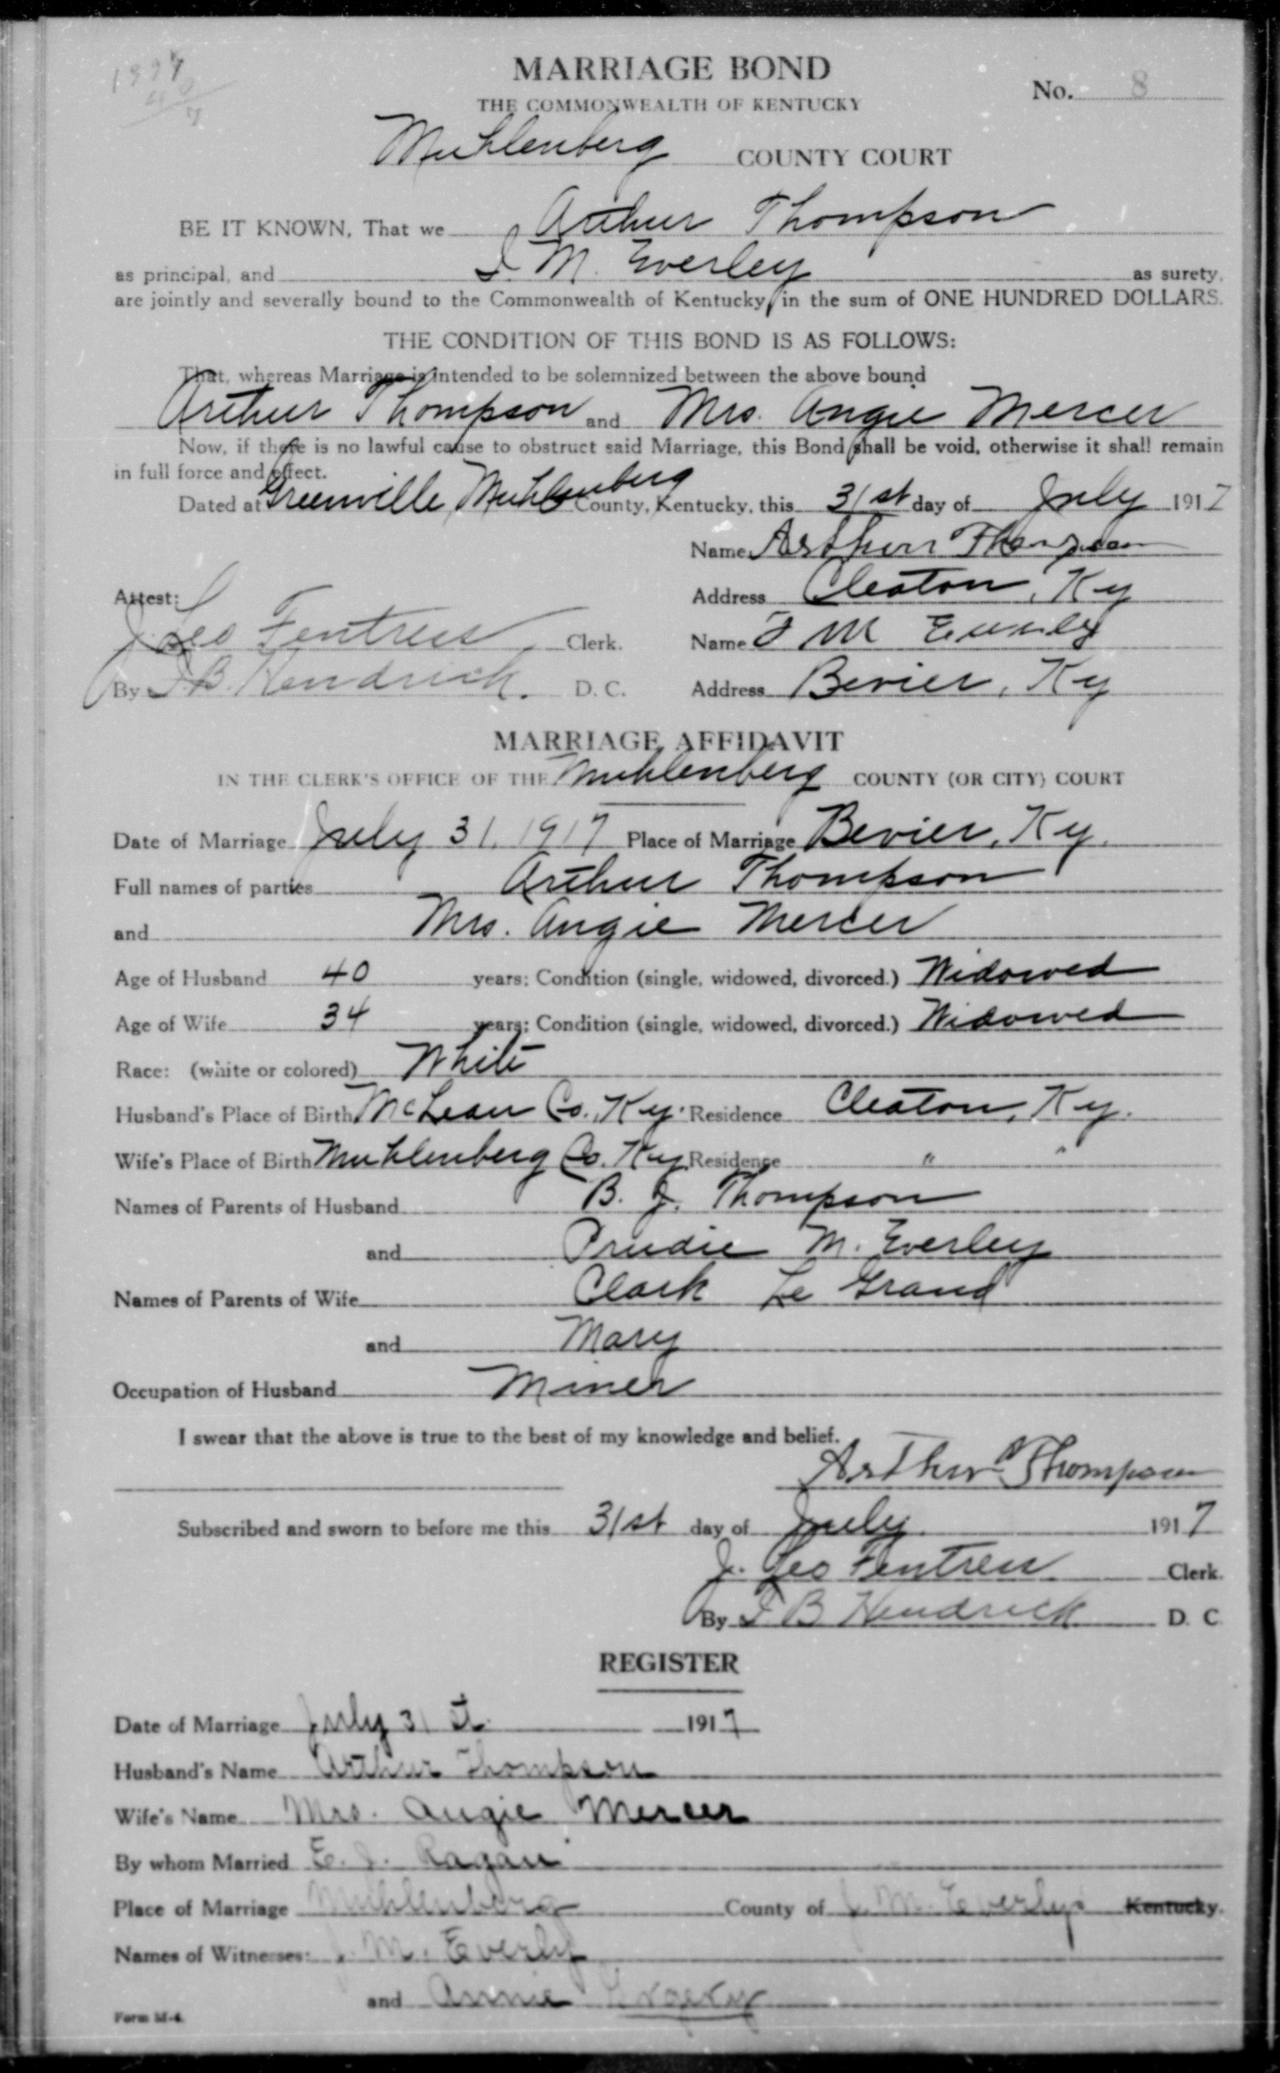 MARRIAGE BOND
No. 8
THE COMMONWEALTH OF KENTUCKY
Muhlenberg COUNTY COURT
BE IT KNOWN, That we Arthur Thompson
as principal, and I M. Everley as surety,
are jointly and severally bound to the Commonwealth of Kentucky, in the sum of ONE HUNDRED DOLLARS.
THE CONDITION OF THIS BOND IS AS FOLLOWS:
That, whereas Marriage is intended to be solemnized between the above bound
Arthur Thompson and Mrs. Angie Mercer
Now, if there is no lawful cause to obstruct said Marriage, this Bond shall be void, otherwise it shall remain
in full force and effect.
Dated at Greenville, Muhlenberg County, Kentucky, this 31st day of July 1917
Name Arthur Thompson
Attest:
Address Cleaton, Ky
J. Leo Fentress Clerk.
Name M Everley
By F. B. Hendrick. D. C.
Address Bevier, Ky
MARRIAGE AFFIDAVIT
IN THE CLERK'S OFFICE OF THE Muhlenberg COUNTY (OR CITY) COURT
Date of Marriage July 31, 1917 Place of Marriage Bevier, Ky.
Full names of parties Arthur Thompson
and Mrs. Angie Mercer
Age of Husband 40 years; Condition (single, widowed, divorced.) Widowed
Age of Wife 34 years; Condition (single, widowed, divorced.) Widowed
Race: (white or colored) White
Husband's Place of Birth McLean Co., Ky. Residence Cleaton, Ky.
Wife's Place of Birth Muhlenberg Co. Ky. Residence " "
Names of Parents of Husband B. J. Thompson
and Prudie M. Everley
Names of Parents of Wife Clark Le Grand
and Mary
Occupation of Husband Miner
I swear that the above is true to the best of my knowledge and belief.
Arthur Thompson
Subscribed and sworn to before me this 31st day of July 1917
J. Leo Fentress Clerk.
By F B Hendrick D. C
REGISTER
Date of Marriage July 31 st 1917
Husband's Name Arthur Thompson
Wife's Name Mrs. Angie Mercer
By whom Married E. J. Ragan
Place of Marriage Muhlenberg County of J. M. Everlys Kentucky.
Names of Witnesses: J. M. Everly
and Annie
Form M-4.